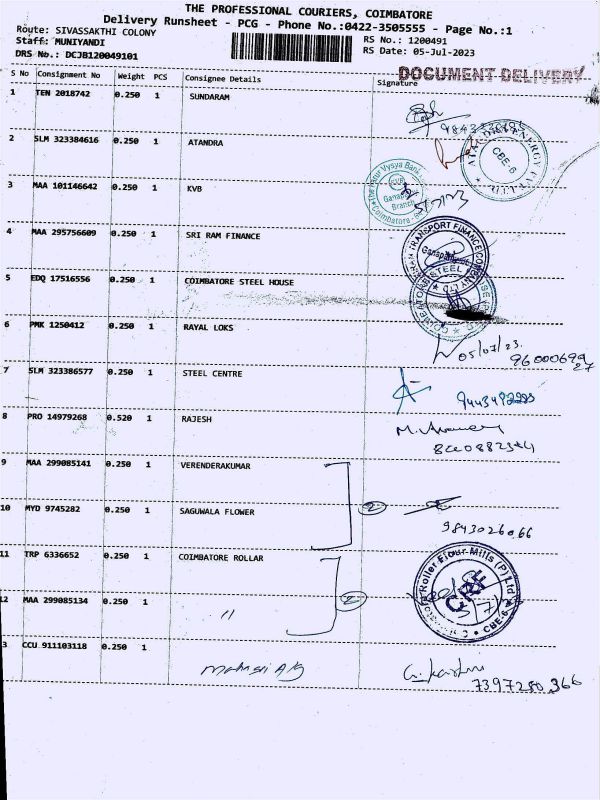 THE PROFESSIONAL COURIERS, COIMBATORE
Delivery Runsheet - PCG - Phone No.:0422-3505555 - Page No.:1
Route: SIVASSAKTHI COLONY
RS No.: 1200491
Staff: MUNIYANDI
RS Date: 05-Jul-2023
DRS No.: DCJB120049101
DOCUMENT DELIVERY
S No Consignment No Weight PCS Consignee Details Signature
1 TEN 2018742 0.250 1 SUNDARAM
2 SLM 323384616 0.250 1 ATANDRA
CBE-6
3 MAA 101146642 0.250 1 KVB
The Karur Vysya Bank
KVB
Ganapathy
Branch
Coimbatore
5/7/23
4 MAA 295756609 0.250 1 SRI RAM FINANCE
TRANSPORT FINANCE
5 EDQ 17516556 0.250 1 COIMBATORE STEEL HOUSE
6 PMK 1250412 0.250 1 RAYAL LOKS
05/07/23.
9600069927
7 SLM 323386577 0.250 1 STEEL CENTRE
8 PRO 14979268 0.520 1 RAJESH
9 MAA 299085141 0.250 1 VERENDERAKUMAR
2
10 MYD 9745282 0.250 1 SAGUWALA FLOWER
9843026066
11 TRP 6336652 0.250 1 COIMBATORE ROLLAR
Roller Flour Mills (P) Ltd
CBE-6
2
12 MAA 299085134 0.250 1 "
3 CCU 911103118 0.250 1
7397250366